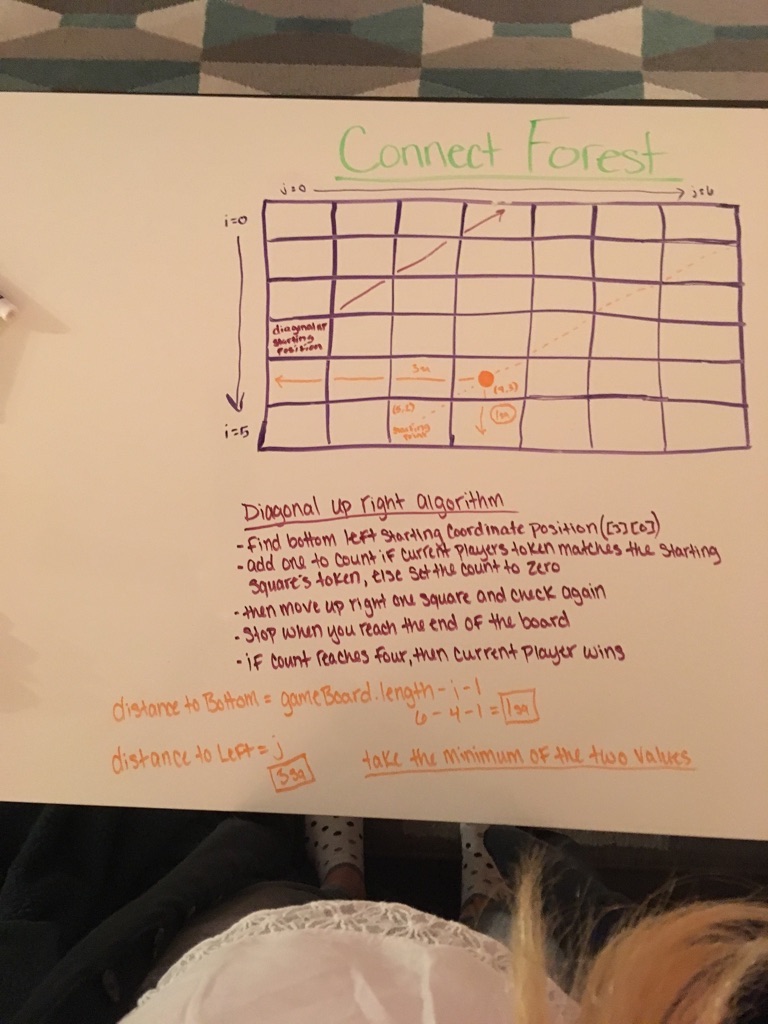 Connect Forest
j=0 j=6
i=0
diagonal up
starting
position
3sq
(4,3)
(5,2)
1sq
starting
point
i=5
Diagonal up right algorithm
- Find bottom left starting coordinate position ([3][0])
- add one to count if current players token matches the starting
square's token, else set the count to zero
- then move up right one square and check again
- Stop when you reach the end of the board
- if count reaches four, then current player wins
distance to Bottom = gameBoard.length - i - 1
6 - 4 - 1 = 1sq
distance to Left = j
3sq
take the minimum of the two values